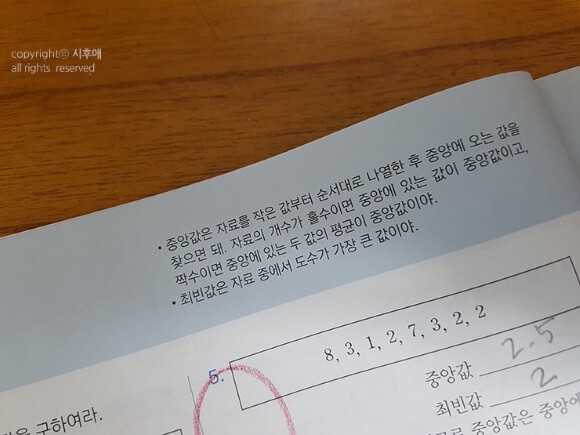 copyrightⓒ 시후애
all rights reserved
• 중앙값은 자료를 작은 값부터 순서대로 나열한 후 중앙에 오는 값을
찾으면 돼. 자료의 개수가 홀수이면 중앙에 있는 값이 중앙값이고,
짝수이면 중앙에 있는 두 값의 평균이 중앙값이야.
• 최빈값은 자료 중에서 도수가 가장 큰 값이야.
5.
8, 3, 1, 2, 7, 3, 2, 2
중앙값 2.5
최빈값 2
구하여라.
중앙값은 중앙에